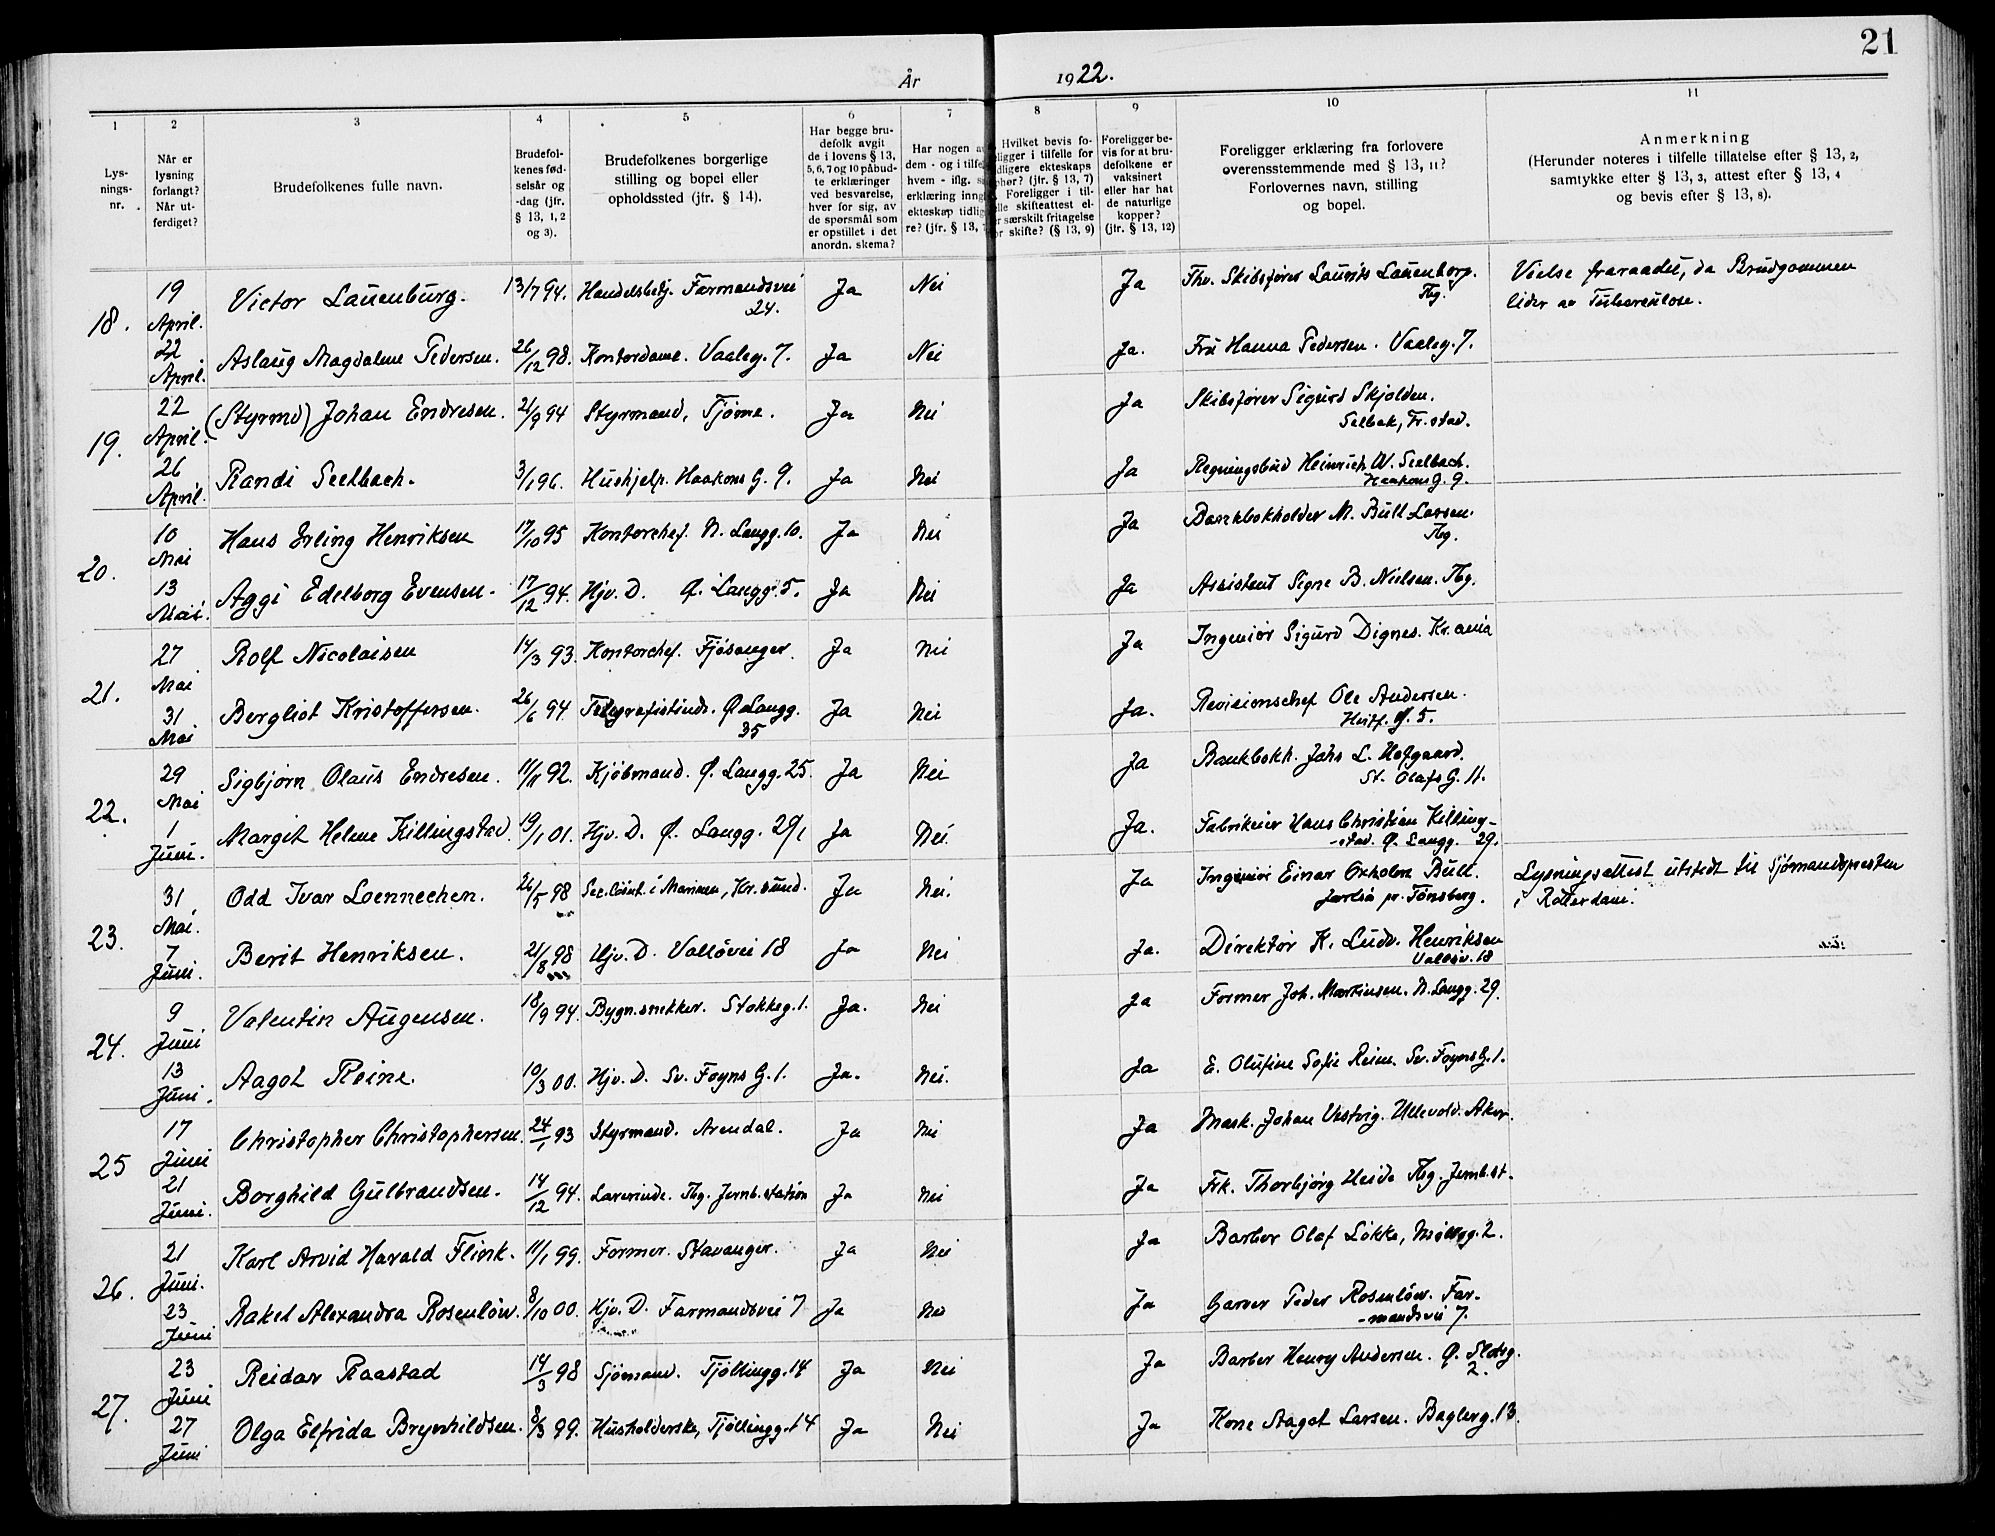 21
År 1922.
1 2 3 4 5 6 7 8 9 10 11
Lys-
nings-
nr.
Når er
lysning
forlangt?
Når ut-
ferdiget?
Brudefolkenes fulle navn.
Brudefol-
kenes fød-
selsår og
-dag (jfr.
§ 13, 1, 2
og 3).
Brudefolkenes borgerlige
stilling og bopel eller
opholdssted (jfr. § 14).
Har begge bru-
defolk avgit
de i lovens § 13,
5, 6, 7 og 10 påbud-
te erklæringer
ved besvarelse,
hver for sig, av
de spørsmål som
er opstillet i det
anordn. skema?
Har nogen a
dem - og i tilfe
hvem - iflg. s
erklæring inng
ekteskap tidlig
re? (jfr. § 13, 7
Hvilket bevis fo-
religger i tilfelle for
tidligere ekteskaps
ophør? (jfr. § 13, 7)
Foreligger i til-
felle skifteattest el-
er særskilt fritagelse
or skifte? (§ 13, 9)
Foreligger be-
vis for at bru-
defolkene er
vaksinert
eller har hat
de naturlige
kopper?
(jfr. § 13, 12)
Foreligger erklæring fra forlovere
overensstemmende med § 13, 11?
Forlovernes navn, stilling
og bopel.
Anmerkning
(Herunder noteres i tilfelle tillatelse efter § 13, 2,
samtykke efter § 13, 3, attest efter § 13, 4
og bevis efter § 13, 8).
18. 19 April. Victor Lauenburg. 13/7 94. Handelsbetj. Farmandsvei 24. Ja Nei Ja Fhv. Skibsfører Laurits Lauenborg. Tbg. Vielse fraraadet, da Brudgommen
lider av Tuberculose.
22 April. Aslaug Magdalene Pedersen. 26/12 98. Kontordame. Vaaleg. 7. Ja Nei Ja. Fru Hanna Pedersen. Vaaleg. 7.
19. 22 April. (Styrmd) Johan Endresen. 21/9 94 Styrmand, Tjøme. Ja Nei Ja Skibsfører Sigurd Skjolden.
Selbak, Fr.stad.
26 April. Randi Seelbach. 3/1 96. Hushjelp. Haakons G. 9. Ja Nei Ja Regningsbud Heinrich W. Seelbach.
Haakons G. 9.
20. 10 Mai Hans Erling Henriksen 17/10 95 Kontorchef. N. Langg. 10. Ja Nei Ja Bankbokholder M. Bull Larsen.
Tbg.
13 Mai. Aggi Edelborg Evensen. 17/12 94. Hjv. D. Ø. Langg. 5. Ja Nei Ja Assistent Signe B. Nielsen. Tbg.
21. 27 Mai Rolf Nicolaisen 14/3 93. Kontorchef. Fjøsanger. Ja Nei Ja Ingeniør Sigurd Dignes. Kr.ania
31 Mai Bergliot Kristoffersen. 26/6 94 Telegrafistinde. Ø Langg. 35 Ja Nei Ja. Revisionschef Ole Andersen.
5.
22. 29 Mai Sigbjørn Olaus Endresen. 11/11 92. Kjøbmand. Ø. Langg. 25. Ja Nei Ja Bankbokh. Jahs L. Hofgaard.
St. Olafs G. 11.
1 Juni. Margit Helene Killingstad. 19/1 01. Hjv. D. Ø. Langg. 29, Ja Nei. Ja. Fabrikeier Hans Christian Killing-
-stad. Ø. Langg. 29.
23. 31 Mai. Odd Ivar Loennechen. 26/5 98 Sec. Løint. i Marinen, Kr.sund. Ja Nei. Ja Ingeniør Einar Oxholm Bull.
Jarlsø pr. Tønsberg. Lysningsattest utstedt til Sjømandspresten
i Rotterdam.
7 Juni. Berit Henriksen. 21/8 98 Hjv. D. Valløvei 18 Ja Nei Ja. Direktør K. Ludv. Henriksen
Valløv. 18
24. 9 Juni Valentin Augensen. 18/9 94. Bygn.snekker. Stokkeg. 1. Ja. Nei Ja Former Joh. Martinsen. N. Langg. 29.
13 Juni. Aagot Reine. 10/3 00. Hjv. D. Sv. Foyns G. 1. Ja. Nei. Ja E. Olufine Sofie Reine. Sv. Foyns G. 1.
25 17 Juni Christopher Christophersen. 24/1 93 Styrmand. Arendal. Ja Nei Ja Mask. Johan Vestvig. Ullevold. Aker.
21 Juni. Borghild Gulbrandsen. 14/12 94. Lærerinde. Tbg. Jernb.station Ja Nei Ja Frk. Thorbjørg Heide Tbg. Jernb.st.
26. 21 Juni. Karl Arvid Harald Flink. 11/1 99. Former. Stavanger. Ja Nei Ja Barber Olaf Løkke, Møllerg. 2.
23 Juni Rakel Alexandra Rosenløw. 8/10 00. Hjv. D. Farmandsvei 7 Ja Nei Ja Garver Peder Rosenløw. Far-
-mandsvei 7.
27. 23 Juni Reidar Raastad 14/3 98 Sjømand. Tjøllingg. 14 Ja Nei Ja Barber Henry Andersen. Ø. Slotsg.
2.
27 Juni Olga Elfrida Brynhildsen. 8/3 99. Husholderske, Tjøllingg. 14 Ja Nei Ja Kone Aagot Larsen. Baglerg. 13.